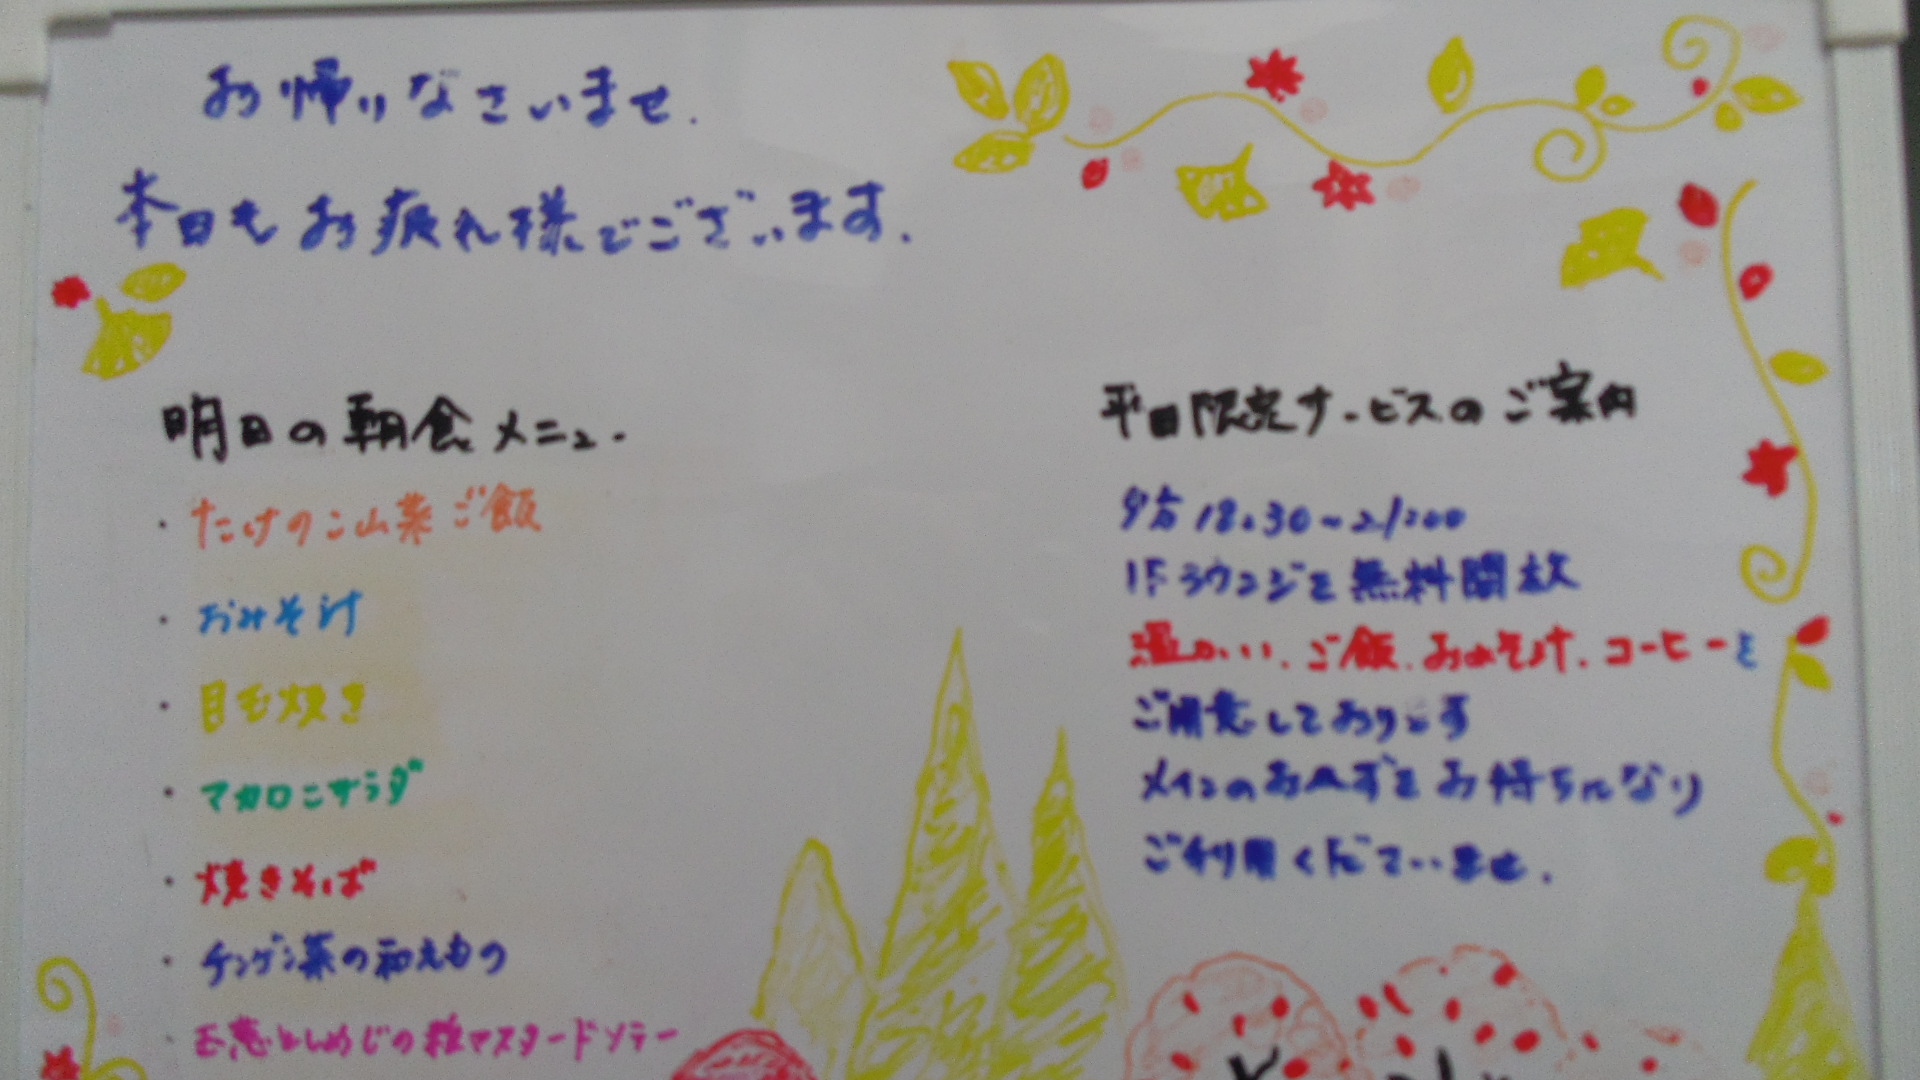 お帰りなさいませ.
本日もお疲れ様でございます.
明日の朝食メニュー
・たけのこ山菜ご飯
・おみそ汁
・目玉焼き
・マカロニサラダ
・焼きそば
・チンゲン菜の和えもの
・玉葱としめじの粒マスタードソテー
平日限定サービスのご案内
夕方 18:30~21:00
1Fラウンジを無料開放
温かい、ご飯、おみそ汁、コーヒーを
ご用意しております
メインのおかずをお持ちになり
ご利用くださいませ.